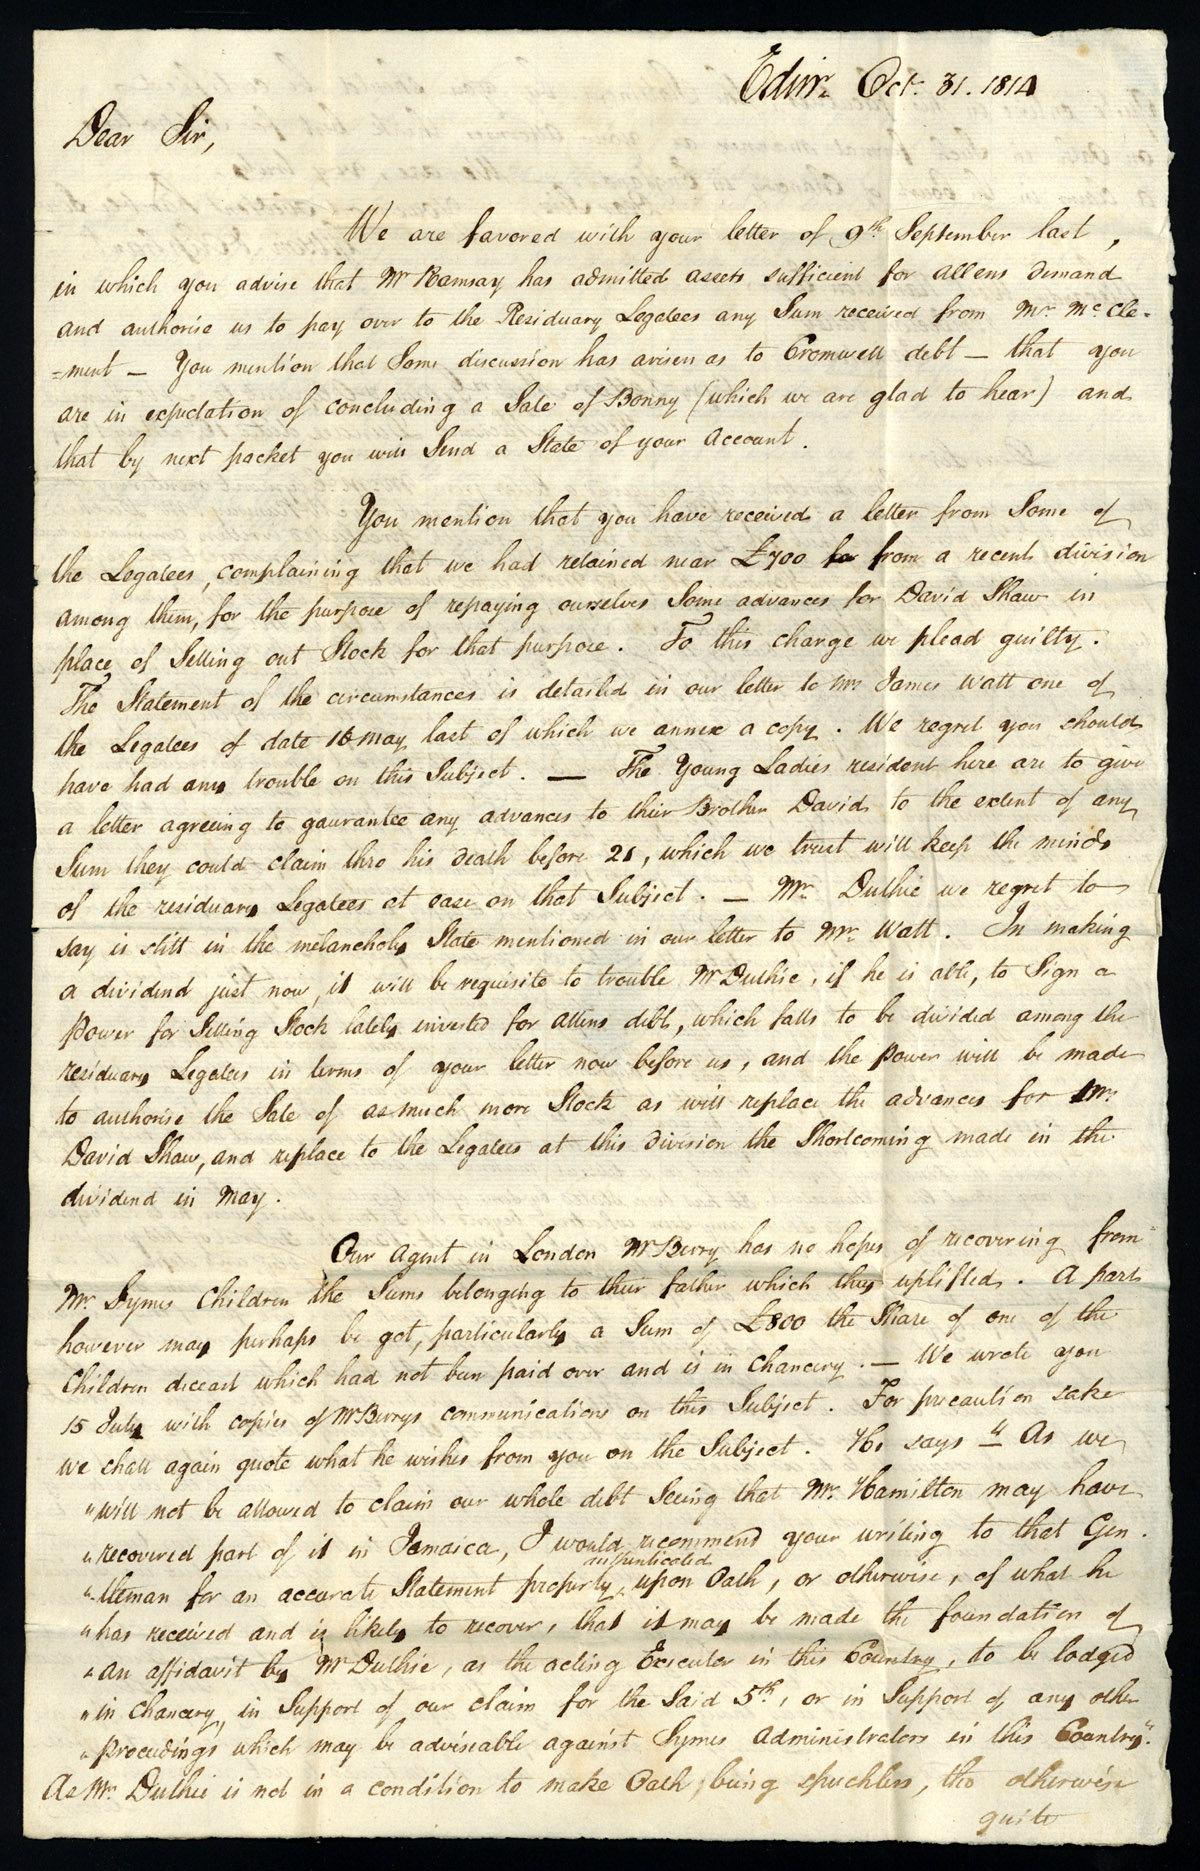 Edinr. Oct. 31. 1814
Dear Sir,
We are favored with your letter of 9th September last,
in which you advise that Mr Ramsay has admitted assets sufficient for Allens Demand
and authorise us to pay over to the Residuary Legatees any Sum received from Mr. McCle-
=ment – You mention that Some discussion has arisen as to Cromwell debt – that you
are in expectation of concluding a Sale of Bonny (which we are glad to hear) and
that by next packet you will Send a State of your Account.
You mention that you have received a letter from Some of
the Legatees, complaining that we had retained near £700 for from a recent division
among them, for the purpose of repaying ourselves Some advances for David Shaw in
place of Selling out Stock for that purpose. To this charge we plead guilty.
The Statement of the circumstances is detailed in our letter to Mr James Watt one of
the Legatees of date 16 May last of which we annex a copy. We regret you should
have had any trouble on this Subject. — The Young Ladies resident here are to give
a letter agreeing to gaurantee any advances to their Brother David to the extent of any
Sum they could claim thro his Death before 21, which we trust will keep the minds
of the residuary Legatees at ease on that Subject. – Mr. Duthie we regret to
say is still in the melancholy State mentioned in our letter to Mr. Watt. In making
a dividend just now, it will be requisite to trouble Mr Duthie, if he is able, to Sign a
Power for Selling Stock lately invested for Allens debt, which falls to be divided among the
residuary Legatees in terms of your letter now before us, and the Power will be made
to authorise the Sale of as much more Stock as will replace the advances for Mr.
David Shaw, and replace to the Legatees at this Division the Shortcoming made in the
dividend in May.
Our Agent in London Mr Berry has no hopes of recovering from
Mr. Symes Children the Sums belonging to their father which they uplifted. A part
however may perhaps be got, particularly a Sum of £800 the Share of one of the
Children deceast which had not been paid over and is in Chancery. – We wrote you
15 July with copies of Mr Berrys communications on this Subject. For precaution sake
we shall again quote what he wishes from you on the Subject. He says " As we
"will not be allowed to claim our whole debt Seeing that Mr. Hamilton may have
"recovered part of it in Jamaica, I would recommend your writing to that Gen.
"tleman for an accurate Statement properly authenticated upon Oath, or otherwise, of what he
"has received and is likely to recover, that it may be made the foundation of
"an affidavit by Mr Duthie, as the acting Executor in this Country, to be lodged
"in Chancery, in Support of our claim for the Said 5th, or in Support of any other
"proceedings which may be adviseable against Symes Administrators in this Country".
As Mr. Duthie is not in a condition to make Oath, being speechless, tho otherwise
quite